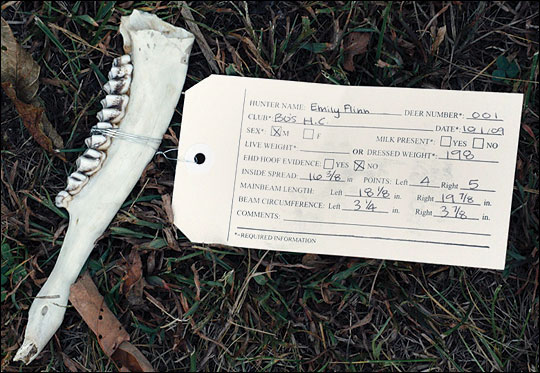 HUNTER NAME: Emily Flinn DEER NUMBER*: 001
CLUB*: BOS H.C. DATE*: 10.1.09
SEX*: X M F MILK PRESENT*: YES NO
LIVE WEIGHT: OR DRESSED WEIGHT*: 198
EHD HOOF EVIDENCE: YES X NO
INSIDE SPREAD: 16 3/8 in. POINTS: Left 4 Right 5
MAINBEAM LENGTH: Left 18 1/8 in. Right 19 7/8 in.
BEAM CIRCUMFERENCE: Left 3 1/4 in. Right 3 7/8 in.
COMMENTS:
*=REQUIRED INFORMATION